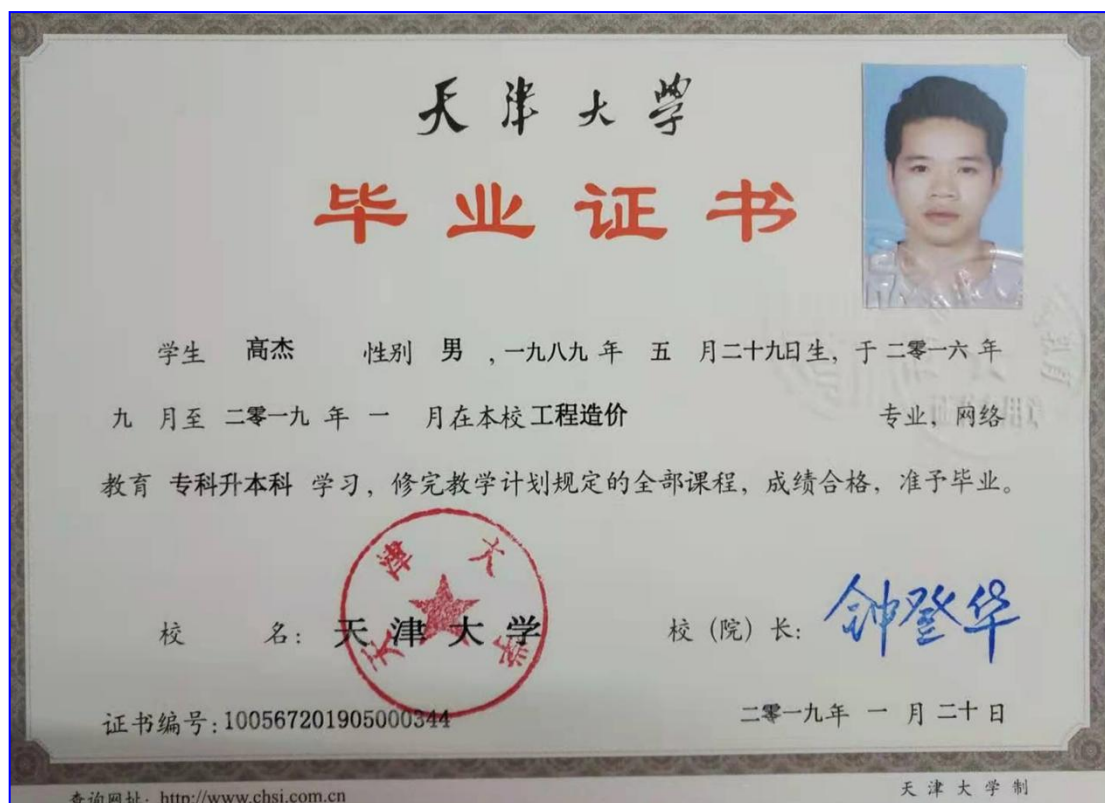 天津大学
毕业证书
学生 高杰 性别 男 ，一九八九 年 五 月二十九日生，于 二零一六 年
九 月至 二零一九 年 一 月在本校 工程造价 专业，网络
教育 专科升本科 学习，修完教学计划规定的全部课程，成绩合格，准予毕业。
天津大学
校 名：天津大学 校（院）长：钟登华
证书编号：100567201905000344 二零一九年 一 月 二十 日
查询网址：http://www.chsi.com.cn 天津大学制